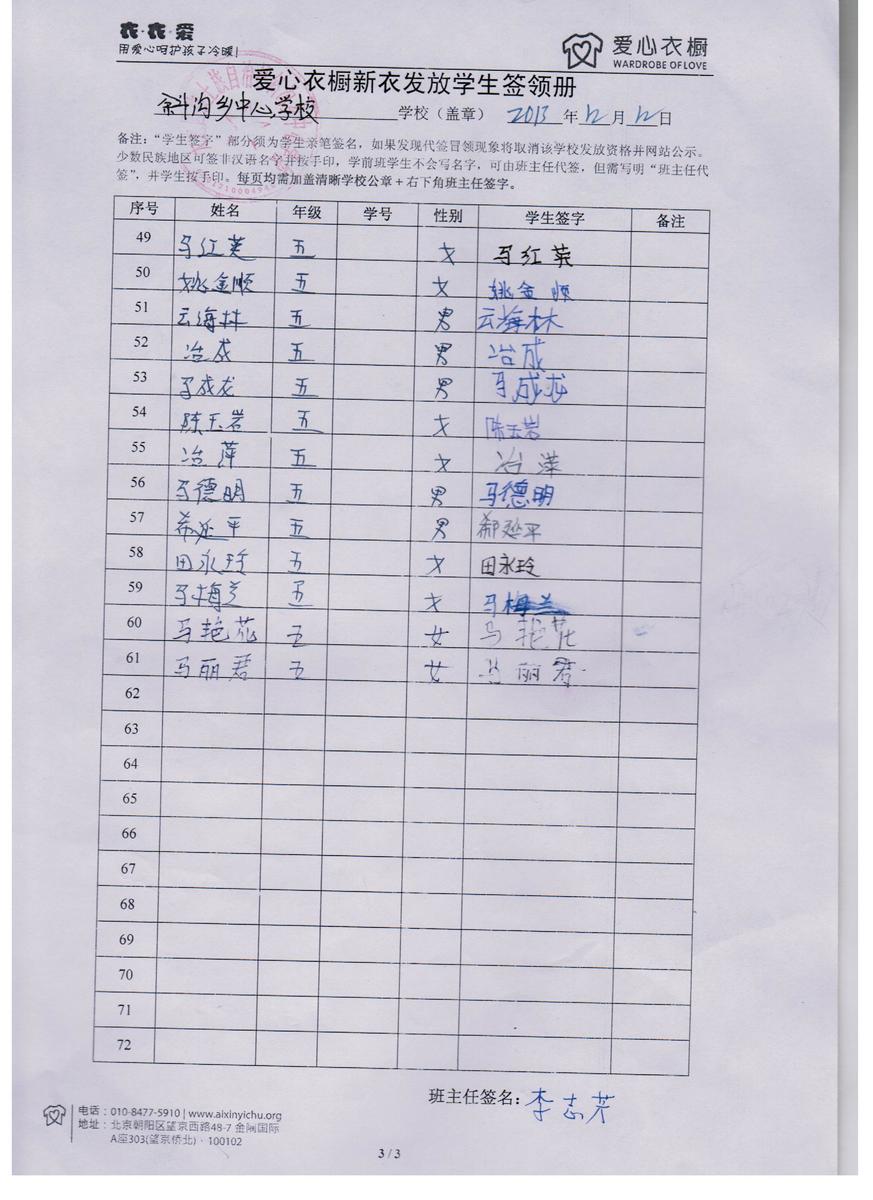 衣·衣·爱
用爱心呵护孩子冷暖!
爱心衣橱
WARDROBE OF LOVE
爱心衣橱新衣发放学生签领册
斜沟乡中心学校 学校（盖章） 2013 年 12 月 12 日
备注：“学生签字”部分须为学生亲笔签名，如果发现代签冒领现象将取消该学校发放资格并网站公示。
少数民族地区可签非汉语名字并按手印，学前班学生不会写名字，可由班主任代签，但需写明“班主任代
签”，并学生按手印。每页均需加盖清晰学校公章+右下角班主任签字。
序号 姓名 年级 学号 性别 学生签字 备注
49 马红英 五 女 马红英
50 姚金顺 五 女 姚金顺
51 云海林 五 男 云海林
52 冶成 五 男 冶成
53 马成龙 五 男 马成龙
54 陈玉岩 五 女 陈玉岩
55 冶萍 五 女 冶萍
56 马德明 五 男 马德明
57 延平 五 男 延平
58 田永玲 五 女 田永玲
59 马梅兰 五 女 马梅兰
60 马艳花 五 女 马艳花
61 马丽君 五 女 马丽君
62
63
64
65
66
67
68
69
70
71
72
班主任签名：李志芳
电话：010-8477-5910 | www.aixinyichu.org
地址：北京朝阳区望京西路48-7 金隅国际
A座303(望京桥北)·100102
3 / 3